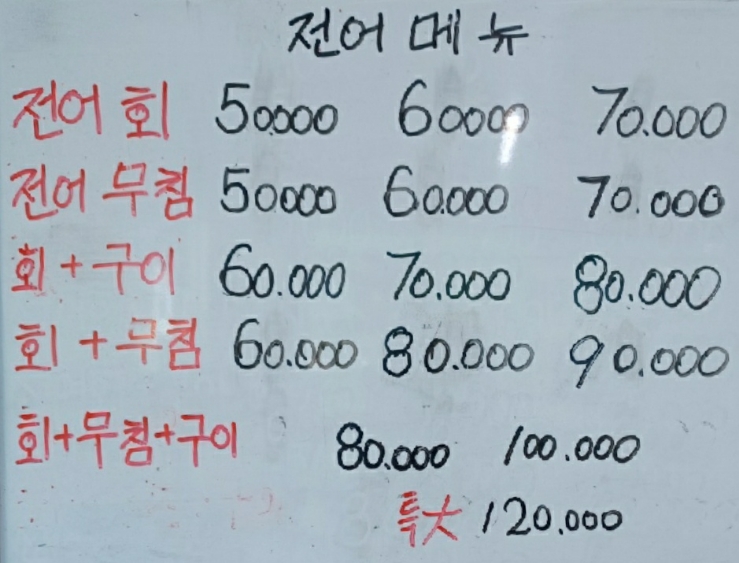 전어 메뉴
전어 회 50000 60000 70.000
전어 무침 50000 60.000 70.000
회+구이 60.000 70.000 80.000
회+무침 60.000 80.000 90.000
회+무침+구이 80.000 100.000
특大 120.000